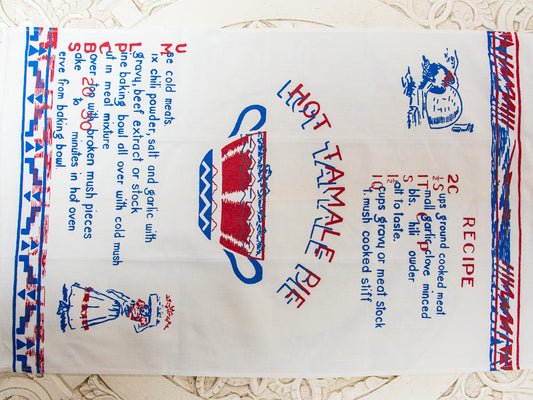 RECIPE
2 Cups ground cooked meat
½ Small garlic clove minced
1 Tbls. Chili Powder
Salt to taste.
1½ Cups gravy or meat stock
1 Qt. mush cooked stiff
HOT TAMALE PIE
Use cold meats
Mix chili powder, salt and garlic with
gravy, beef extract or stock
Line baking bowl all over with cold mush
Put in meat mixture
Cover top with broken mush pieces
Bake 20 to 30 minutes in hot oven
Serve from baking bowl